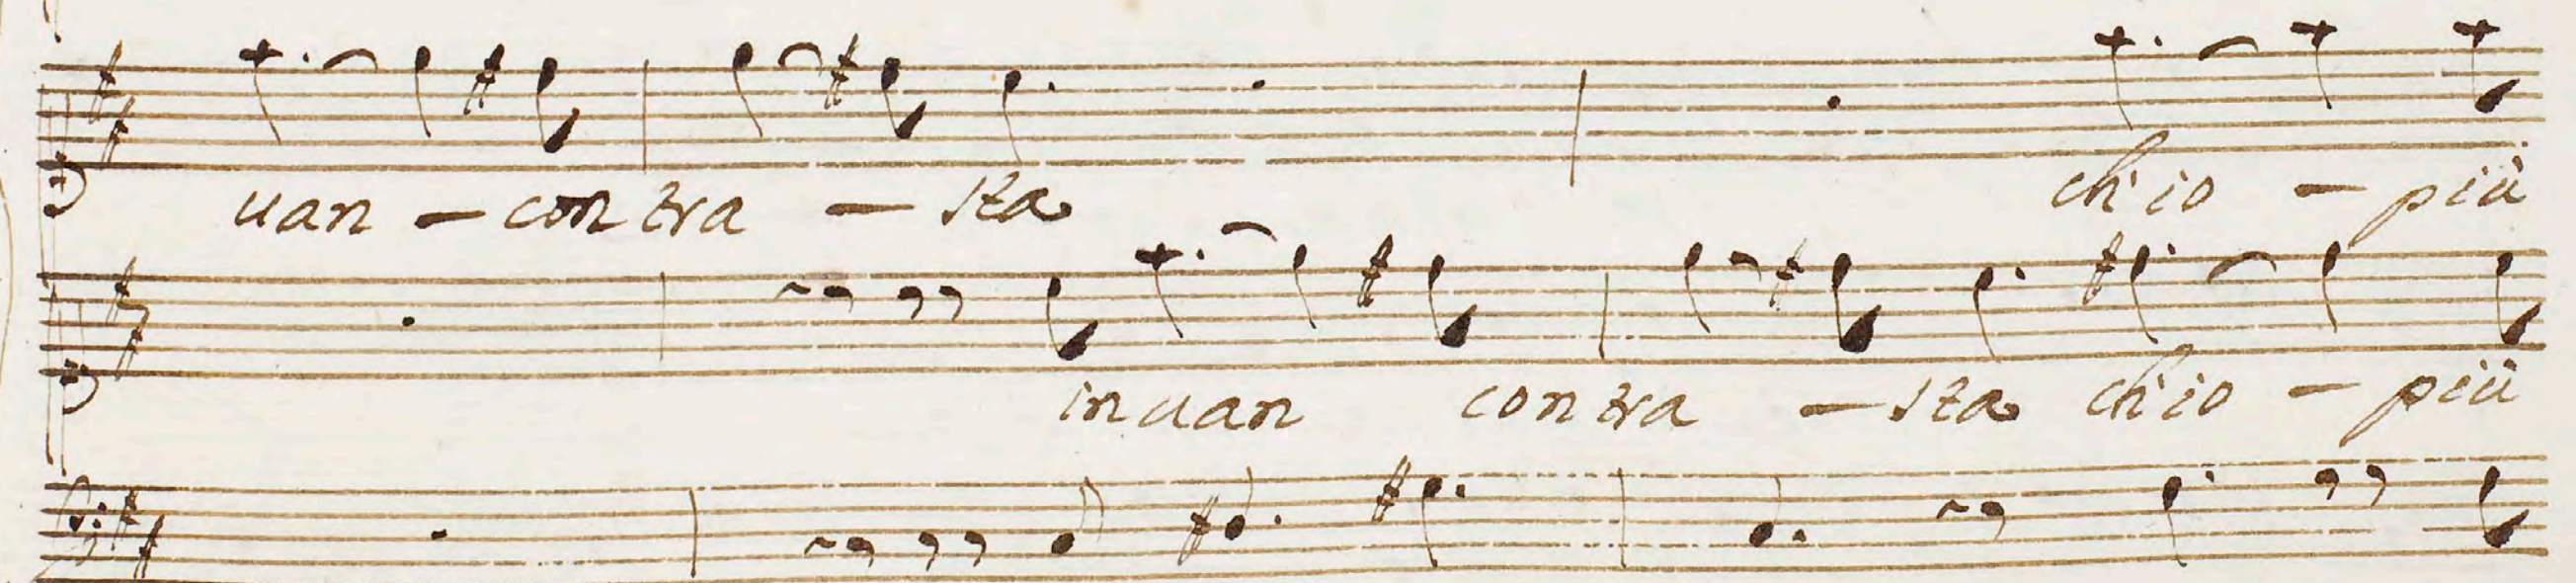 uan - con tra - sta ch'io - più
inuan con tra - sta ch'io - più